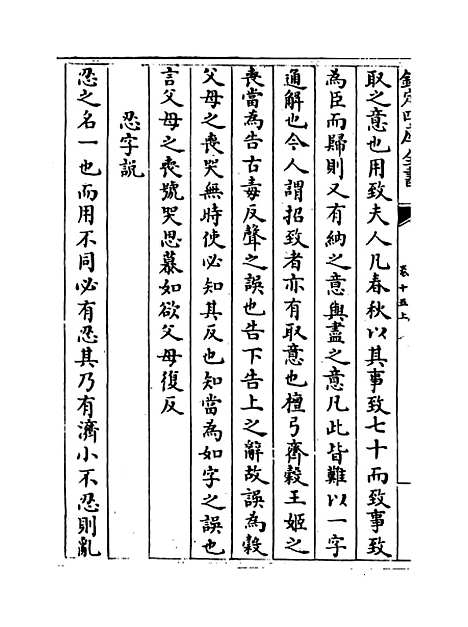 欽定四庫全書
卷十五上
取之意也用致夫人凡春秋以其事致七十而致事致
為臣而歸則又有納之意與盡之意凡此皆難以一字
通解也今人謂招致者亦有取意也檀弓齊穀王姬之
喪當為告古毒反聲之誤也告下告上之辭故誤為穀
父母之喪哭無時使必知其反也知當為如字之誤也
言父母之喪號哭思慕如欲父母復反
忍字説
忍之名一也而用不同必有忍其乃有濟小不忍則亂